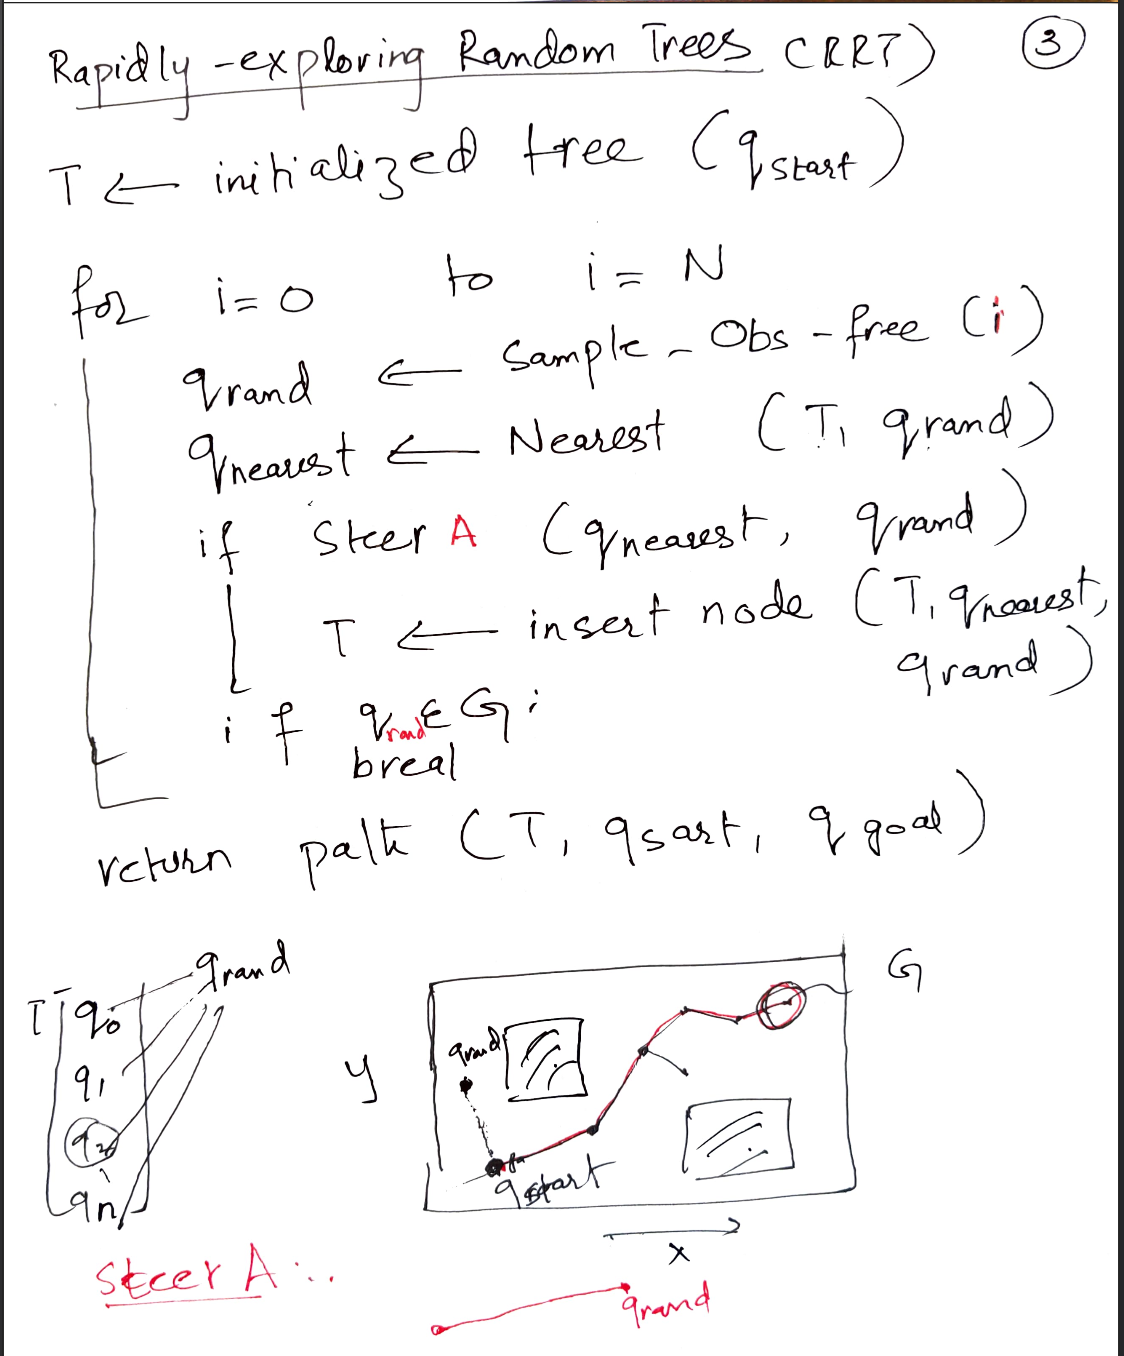 Rapidly-exploring Random Trees (RRT) 3
T ← initialized tree (qstart)
for i=0 to i=N
qrand ← Sample_Obs-free (i)
qnearest ← Nearest (T, qrand)
if Steer A (qnearest, qrand)
T ← insert node (T, qnearest,
qrand)
if qrand ∈ G;
breal
return path (T, qsart, qgoal)
qrand
T
q0
q1
q2
qn
G
y
qrand
qstart
x
Steer A :..
qrand